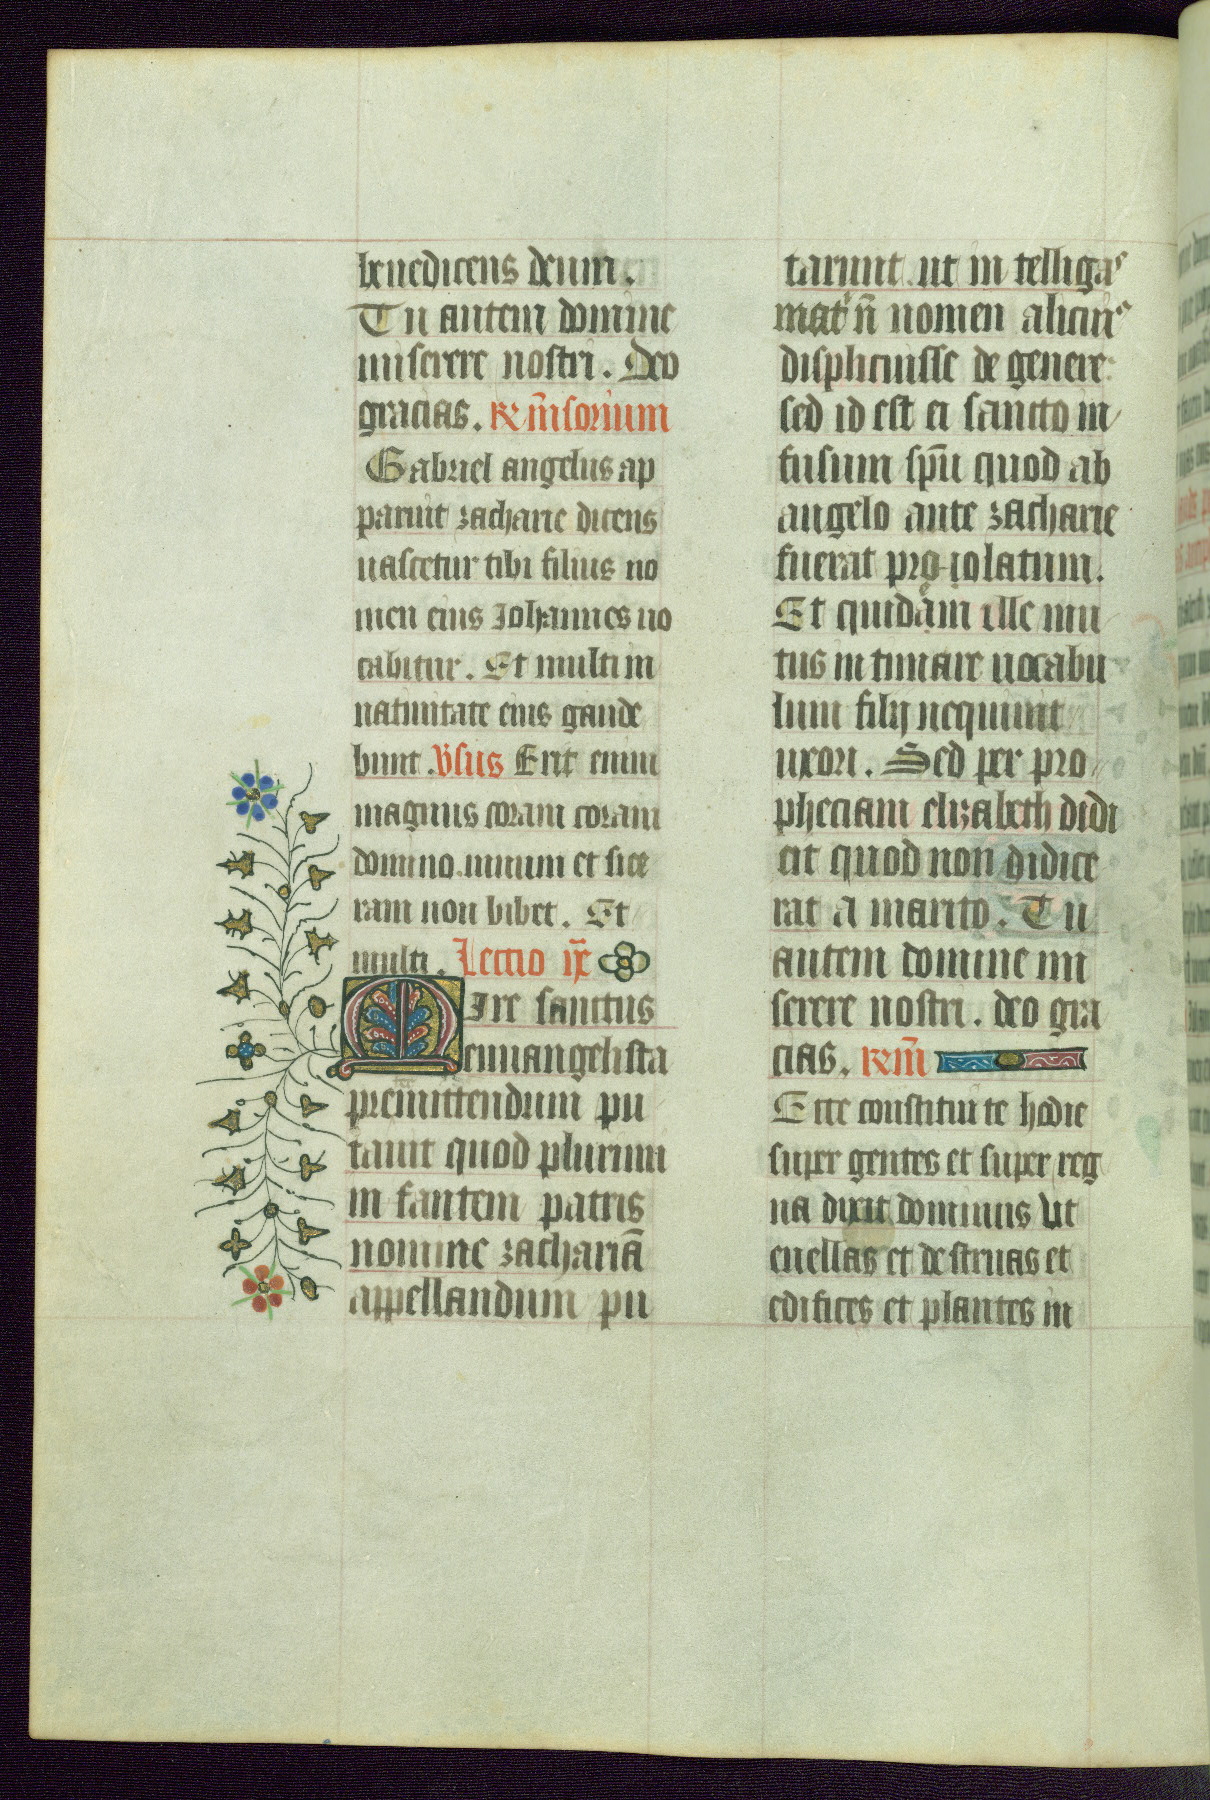 benedicens deum.
Tu autem domine
miserere nostri. Deo
gracias. R̃m̃sorium
Gabriel angelus ap
paruit zacharie dicens
nascetur tibi filius no
men eius Iohannes uo
cabitur. Et multi in
natiuitate eius gaude
bunt. v̄sus Erit enim
magnus coram coram
domino. uinum et sice
ram non bibet. Et
multi. Lectio ix
Mire sanctus
euuangelista
premittendum pu
tauit quod plurimi
in fantem patris
nomine zachariā
appellandum pu
tarunt. ut in telligas
mat̃ ñ nomen alicuiꝰ
displicuisse de genere
sed id est ei sancto in
fusum sp̄u quod ab
angelo ante zacharie
fuerat pro iolatum.
Et quidam ille mu
tus in timare uocabu
lum filij nequiuit
uxori. Sed per pro
pheciam elizabeth didi
cit quod non didice
rat a marito. Tu
autem domine mi
serere nostri. deo gra
cias. R̃m̃
Ecce constitui te hodie
super gentes et super reg
na dixit dominus Ut
euellas et de struas et
edifices et plantes in